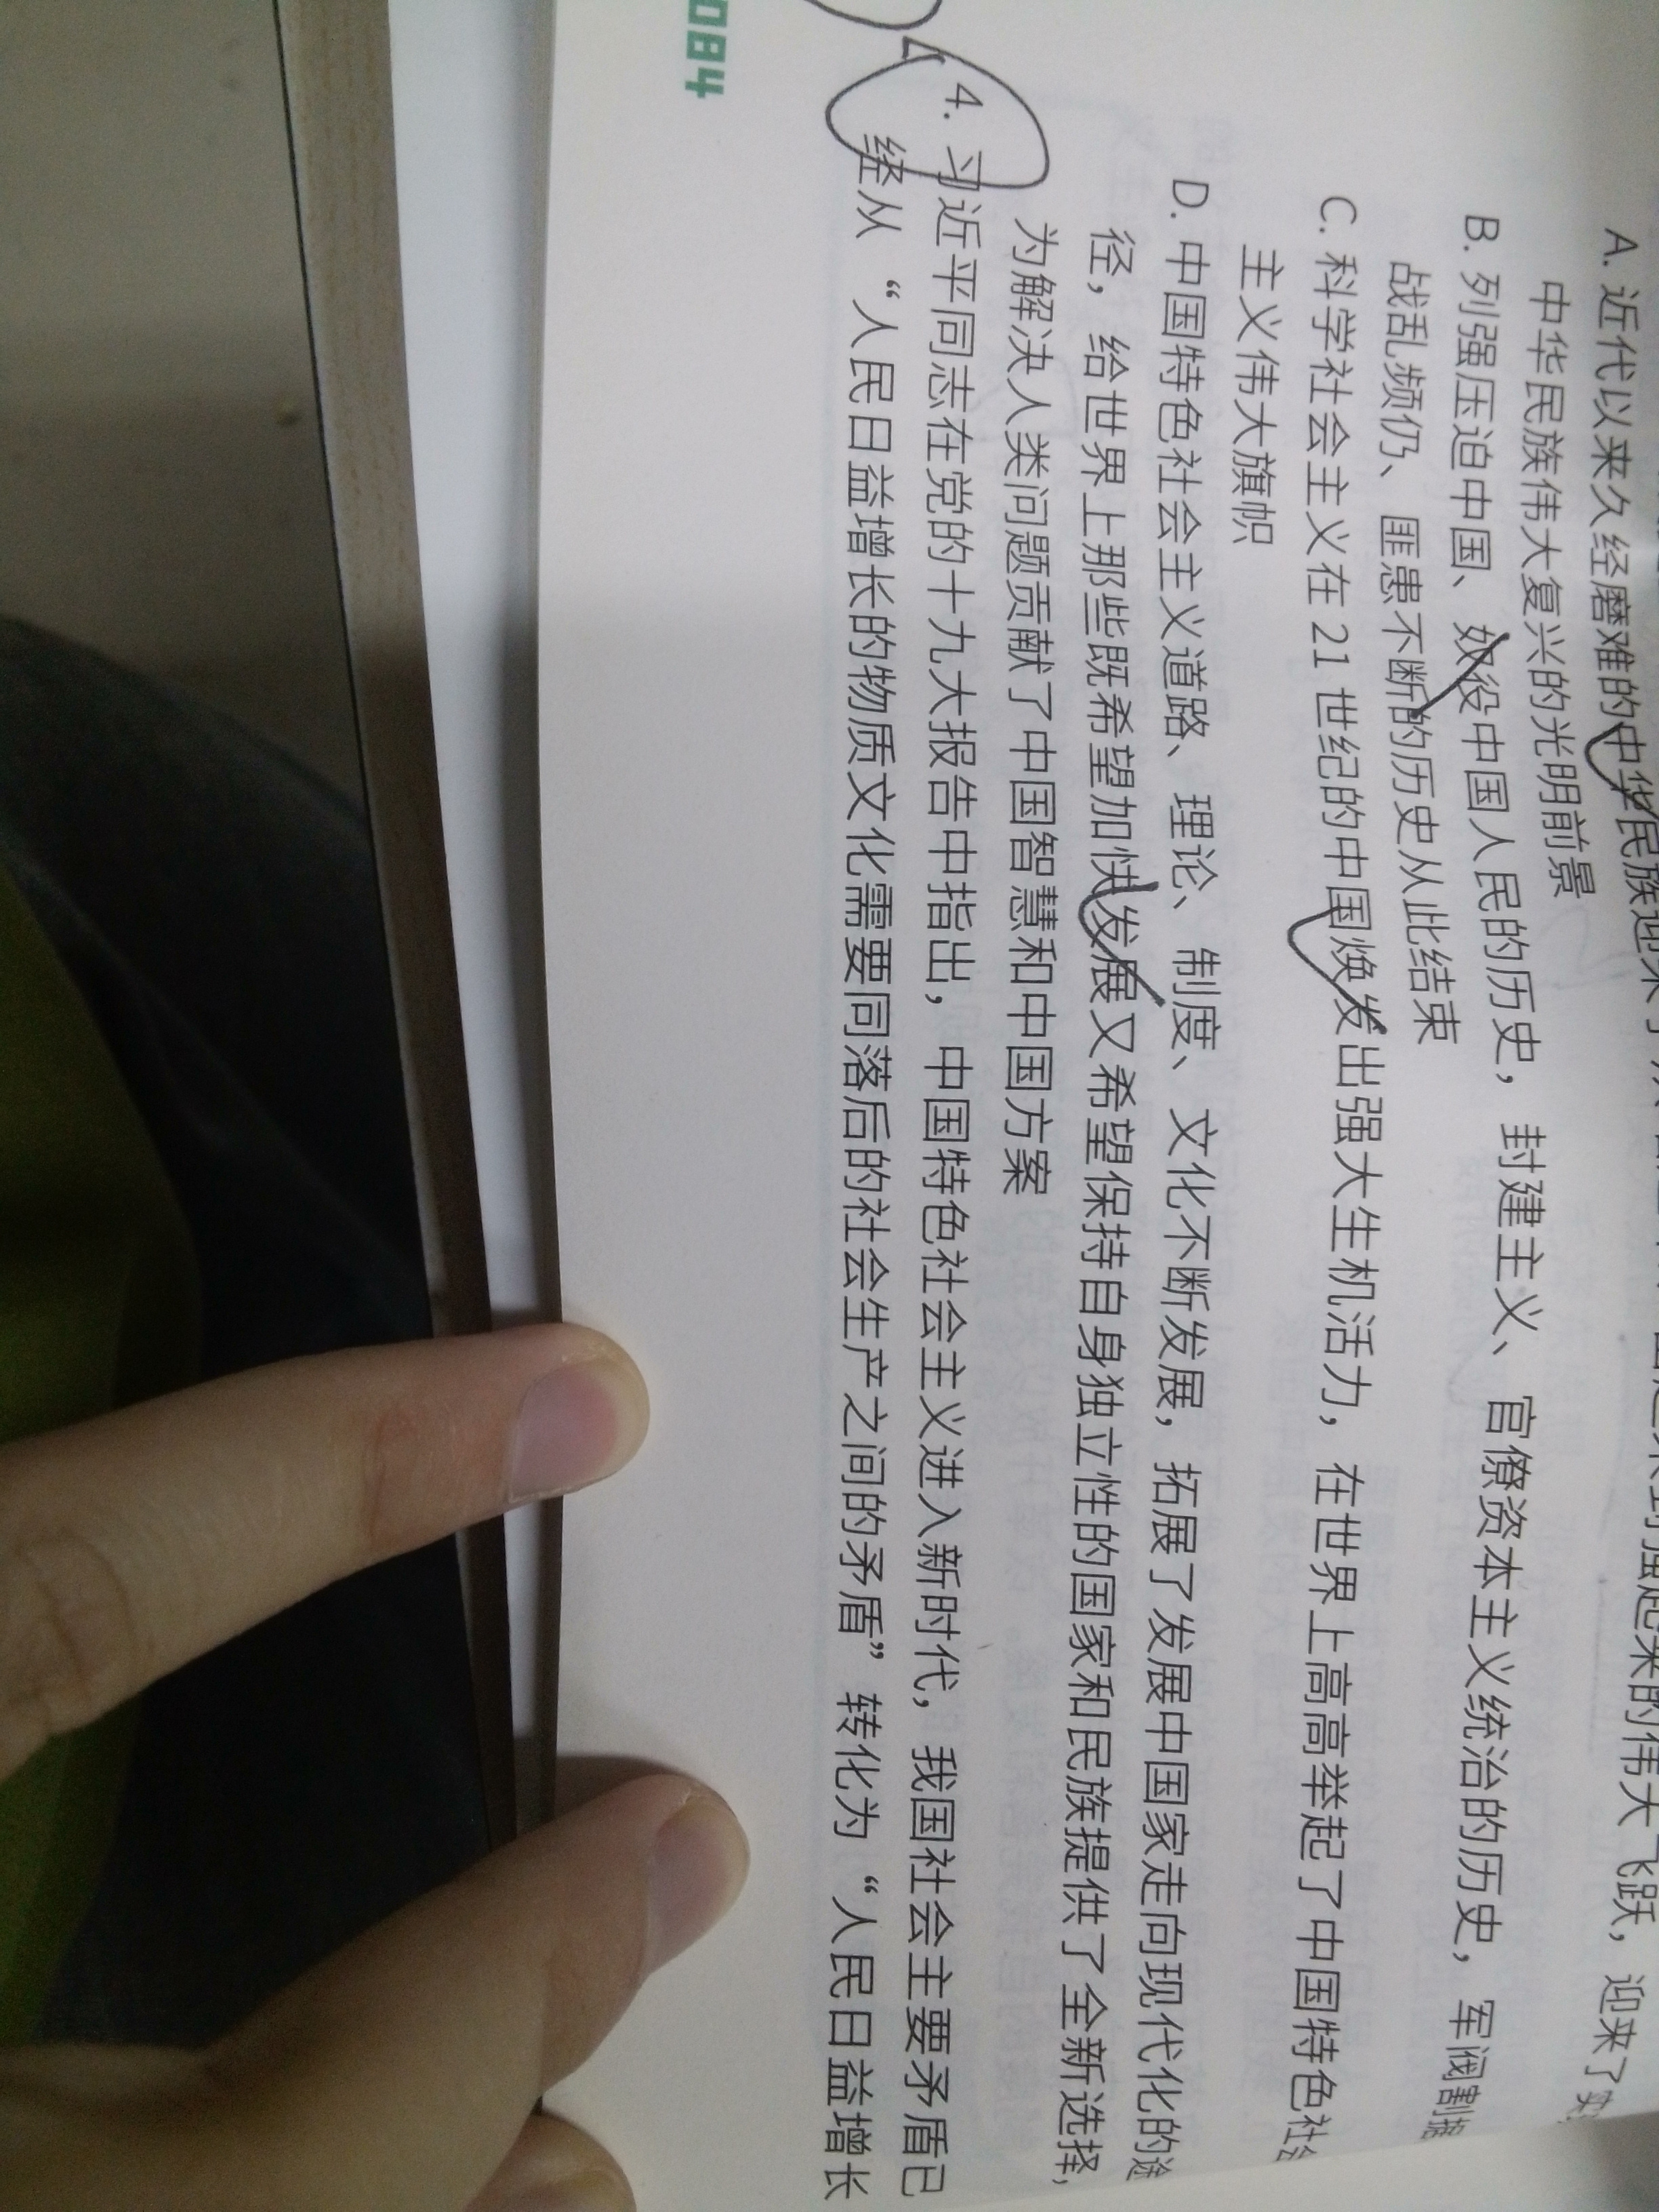 A. 近代以来久经磨难的中华民族迎来了 起来的伟大飞跃，迎来了实
中华民族伟大复兴的光明前景
B. 列强压迫中国、奴役中国人民的历史，封建主义、官僚资本主义统治的历史，军阀割据
战乱频仍、匪患不断的历史从此结束
C. 科学社会主义在 21 世纪的中国焕发出强大生机活力，在世界上高高举起了中国特色社会
主义伟大旗帜
D. 中国特色社会主义道路、理论、制度、文化不断发展，拓展了发展中国家走向现代化的途
径，给世界上那些既希望加快发展又希望保持自身独立性的国家和民族提供了全新选择，
为解决人类问题贡献了中国智慧和中国方案
4. 习近平同志在党的十九大报告中指出，中国特色社会主义进入新时代，我国社会主要矛盾已
经从“人民日益增长的物质文化需要同落后的社会生产之间的矛盾”转化为“人民日益增长
084